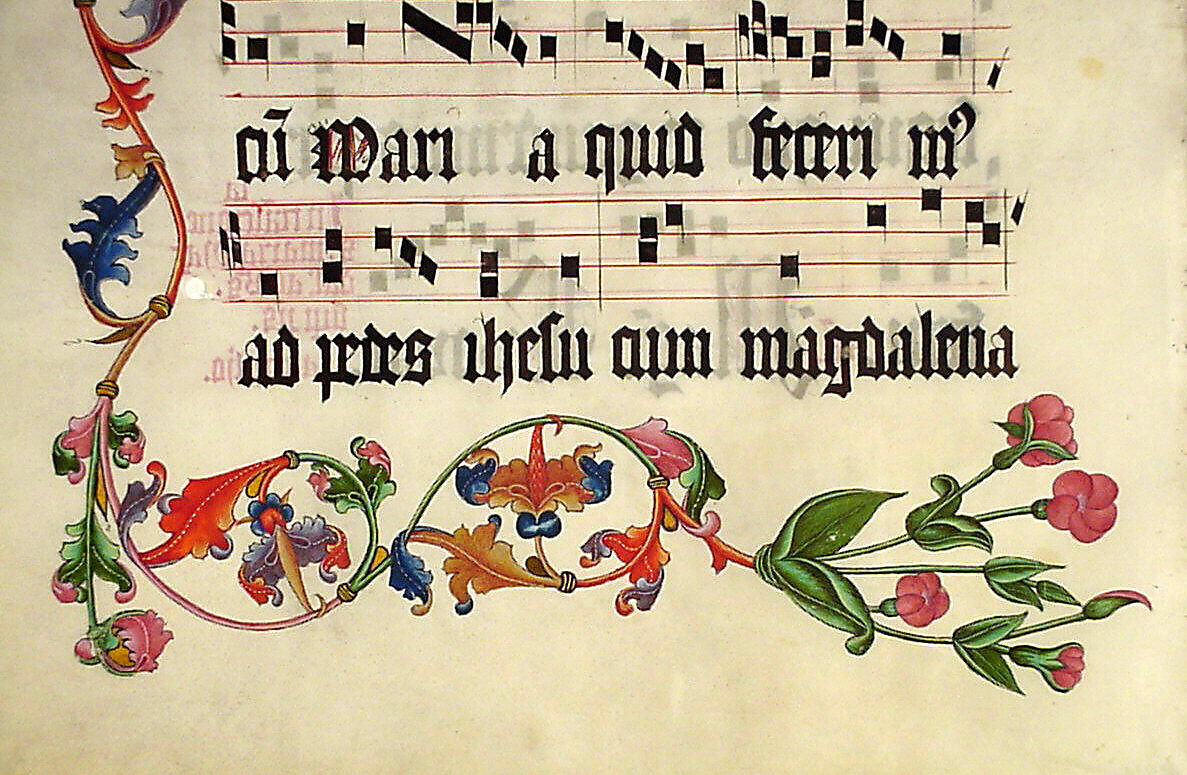 cū Mari a quid feceri mꝰ
ad pedes ihesu cum magdalena